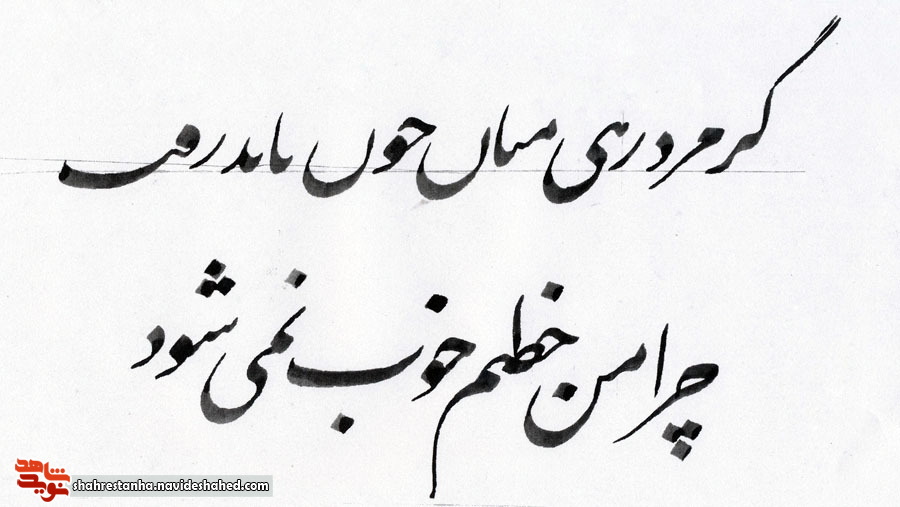 گر مرد رهی میان خون باید رفت
چرا من خطم خوب نمی شود
نوید شاهد
shahrestanha.navideshahed.com